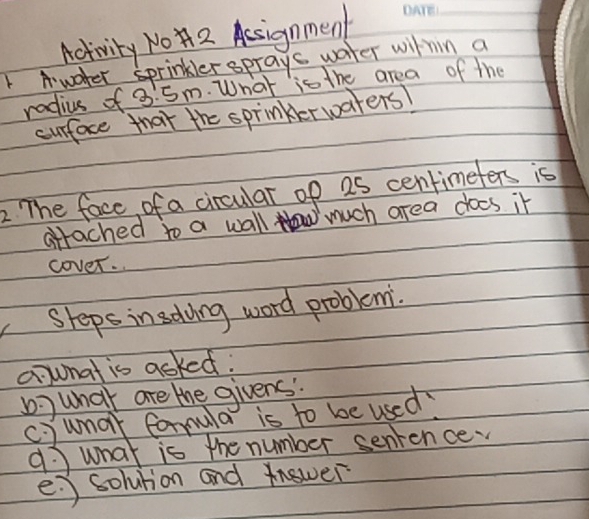 DATE:
Activity No #2 Assignment
1. A water sprinkler sprays water within a
radius of 3.5m. What is the area of the
surface that the sprinkler waters!
2. The face of a circular of 25 centimeters is
attached to a wall How much area does it
cover..
Steps in solving word problem.
a.) what is asked:
b.) what are the givens:
c.) what formula is to be used:
d.) what is the number sentence
e.) solution and Answer